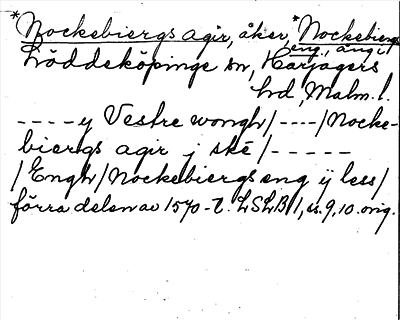 *Nockebiergs agir, åker, *Nockebiergs
eng, äng i
Löddeköpinge sn, Harjagers
hd, Malm. l.
---- y Vestre wongh/----/Nocke-
biergs agir j ske/-----
/Engh/Nockebiergs eng ij less/
förra delen av 1570-t. LSLB 1, s. 9, 10. orig.